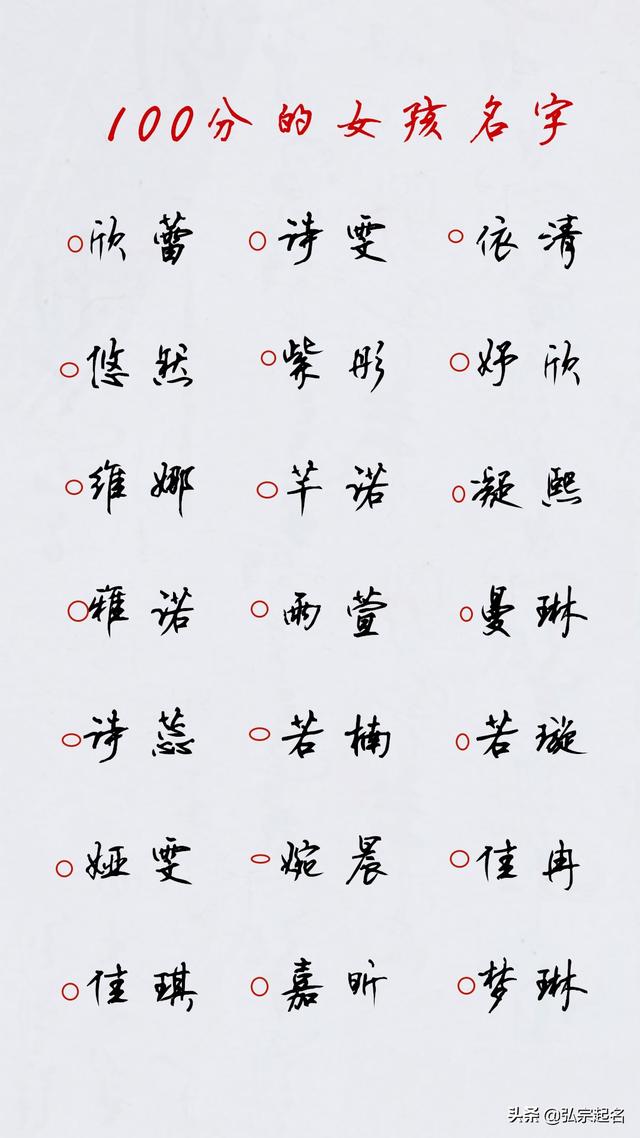 100分的女孩名字
欣蕾 诗雯 依清
悠然 紫彤 妤欣
维娜 芊诺 凝熙
雅诺 雨萱 曼琳
诗蕊 若楠 若璇
娅雯 婉晨 佳冉
佳琪 嘉昕 梦琳
头条 @弘宗起名